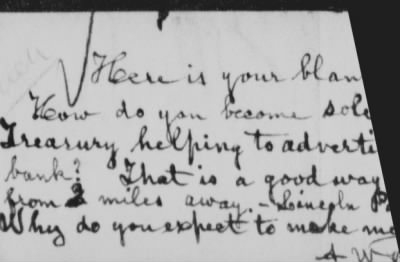 Here is your blan
How do you become sole
Treasury helping to adverti
bank? That is a good way
from 2 miles away. - Lincoln P
Why do you expect to make me